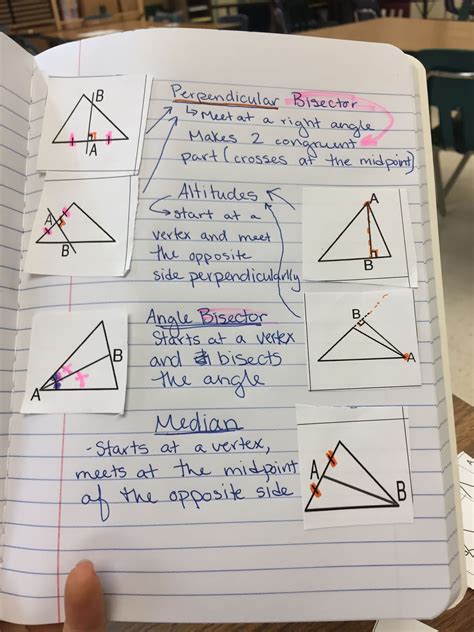 Perpendicular Bisector
Meet at a right angle
Makes 2 congruent
part (crosses at the midpoint)
B
A
Altitudes
start at a
vertex and meet
the opposite
side perpendicularly
A
B
A
B
Angle Bisector
Starts at a vertex
and bisects
the angle
B
A
A
B
Median
- Starts at a vertex,
meets at the midpoint
of the opposite side
A
B